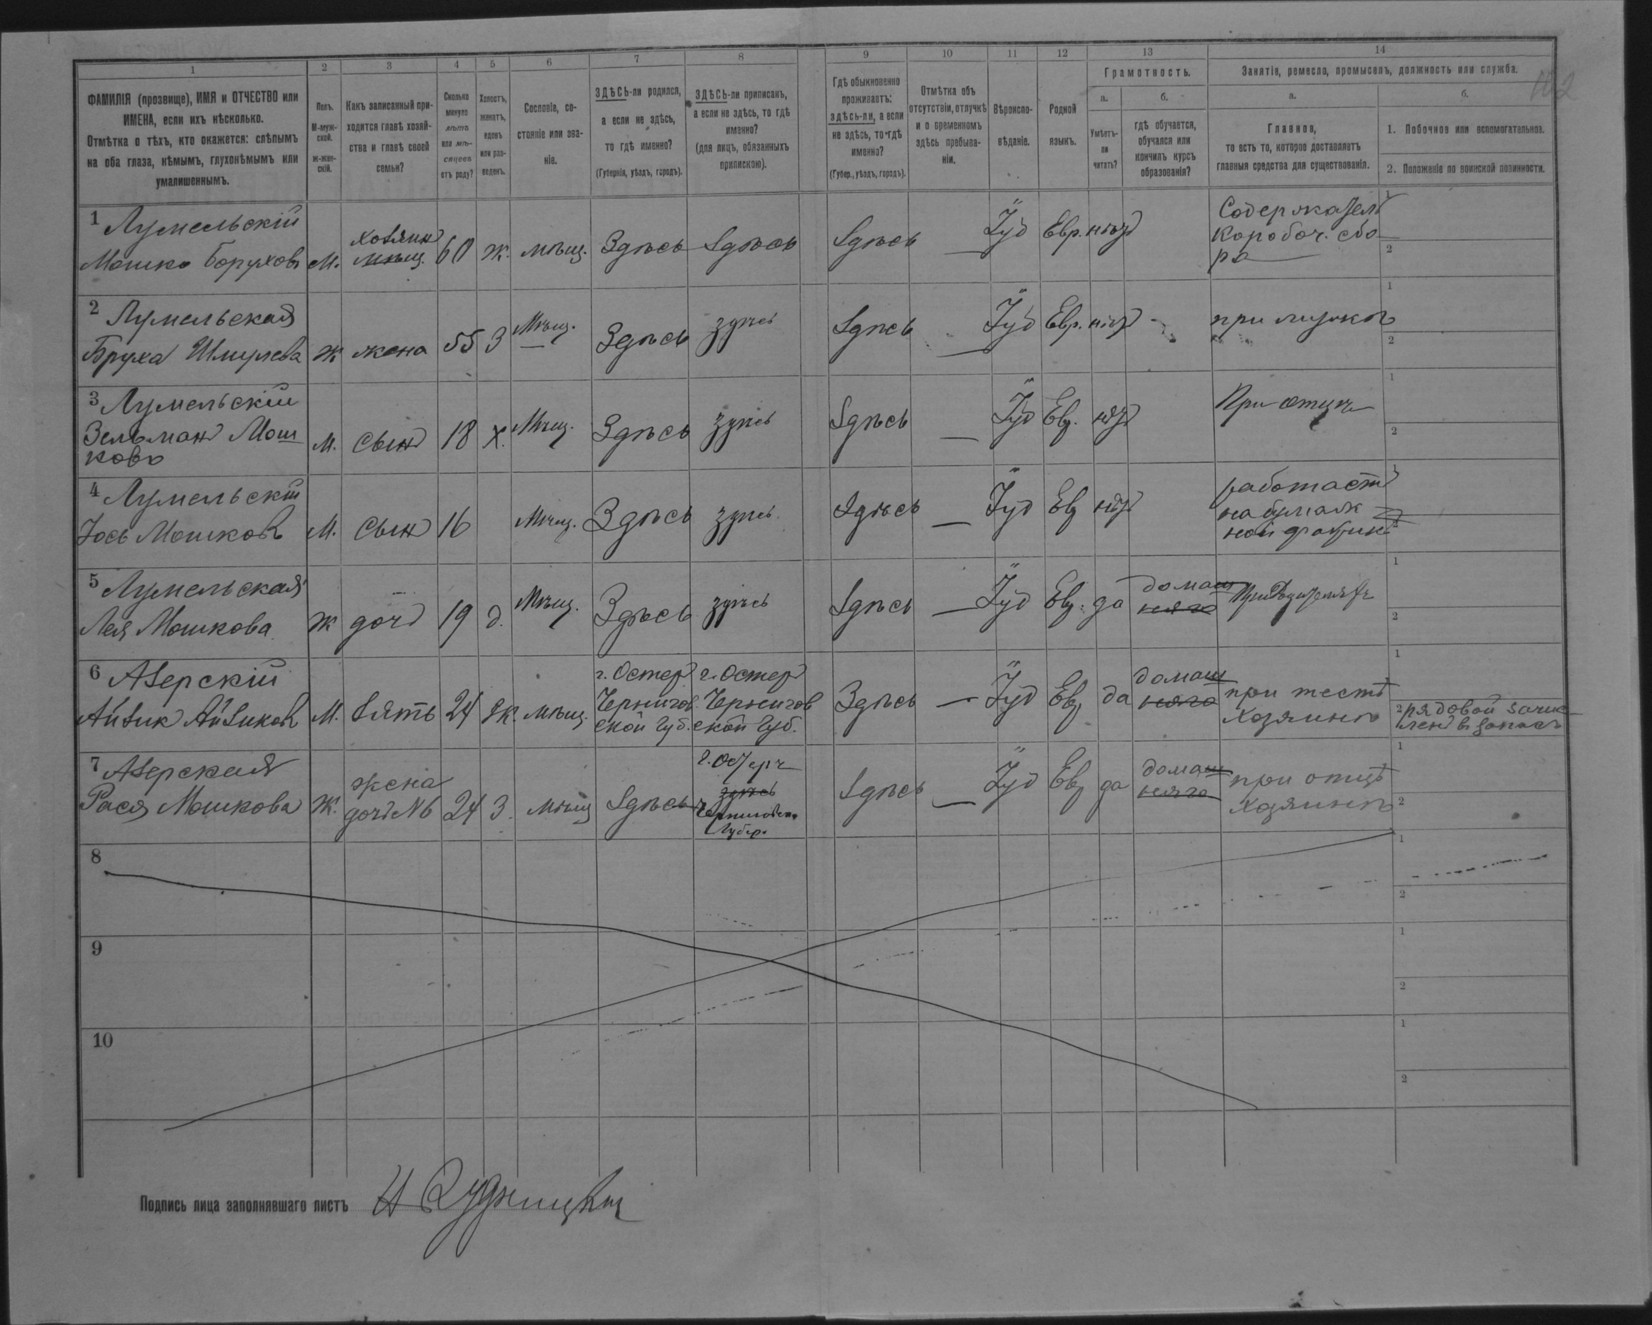 1 2 3 4 5 6 7 8 9 10 11 12 13 14
ФАМИЛІЯ (прозвище), ИМЯ и ОТЧЕСТВО или
ИМЕНА, если ихъ нѣсколько.
Отмѣтка о тѣхъ, кто окажется: слѣпымъ
на оба глаза, нѣмымъ, глухонѣмымъ или
умалишеннымъ.
Полъ.
М-муж-
ской.
ж-жен-
скій.
Какъ записанный при-
ходится главѣ хозяй-
ства и главѣ своей
семьи?
Сколько
минуло
лѣтъ
или мѣ-
сяцевъ
отъ роду?
Холостъ,
женатъ,
вдовъ
или раз-
веденъ.
Сословіе, со-
стояніе или зва-
ніе.
ЗДѢСЬ-ли родился,
а если не здѣсь,
то гдѣ именно?
(Губернія, уѣздъ, городъ).
ЗДѢСЬ-ли приписанъ,
а если не здѣсь, то гдѣ
именно?
(для лицъ, обязанныхъ
припискою).
Гдѣ обыкновенно
проживаетъ:
здѣсь-ли, а если
не здѣсь, то-гдѣ
именно?
(Губер., уѣздъ, городъ).
Отмѣтка объ
отсутствіи, отлучкѣ
и о временномъ
здѣсь пребыва-
ніи.
Вѣроиспо-
вѣданіе.
Родной
языкъ.
Грамотность.
а.
Умѣетъ-
ли
читать?
б.
гдѣ обучается,
обучался или
кончилъ курсъ
образованія?
Занятіе, ремесло, промыселъ, должность или служба.
а.
Главное,
то есть то, которое доставляетъ
главныя средства для существованія.
б.
1. Побочное или вспомогательное.
2. Положеніе по воинской повинности.
1 Лумельскій
Мошко Боруховъ м. хозяинъ 60 ж. мѣщ. Здѣсь Здѣсь Здѣсь — Іуд Евр. нѣтъ Содержатель
Короboч. сбо
ра
2 Лумельская
Бруха Шмулева ж жена 55 З Мѣщ. Здѣсь здѣсь Здѣсь — Іуд Евр. нѣтъ - при мужѣ
3 Лумельскій
Зельман Мош
ковъ м. сынъ 18 х. Мѣщ. Здѣсь здѣсь Здѣсь — Іуд Евр. нѣтъ При отцѣ
4 Лумельскій
Іось Мошковъ М. сынъ 16 Мѣщ. Здѣсь здѣсь Здѣсь — Іуд Евр нѣтъ работаетъ
на бумаж
ной фабрикѣ
5 Лумельская
Лея Мошкова ж дочь 19 д. Мѣщ. Здѣсь здѣсь Здѣсь — Іуд Евр. да домаш
няго При родителяхъ
6 Азерскій
Айзик Айзиковъ М. зять 24 ж. мѣщ. г. Остер
Чернигов
ской губ. г. Остер
Чернигов
ской губ. Здѣсь — Іуд Евр да домаш
няго при тестѣ
хозяинѣ 2 рядовой зачис
лен в запасъ
7 Азерская
Рася Мошкова ж. жена
дочь №6 24 З. мѣщ Здѣсь г. Остерѣ
здѣсь
Черниговская
Губер. Здѣсь — Іуд Евр да домаш
няго при отцѣ
хозяинѣ
8
9
10
Подпись лица заполнявшаго листъ